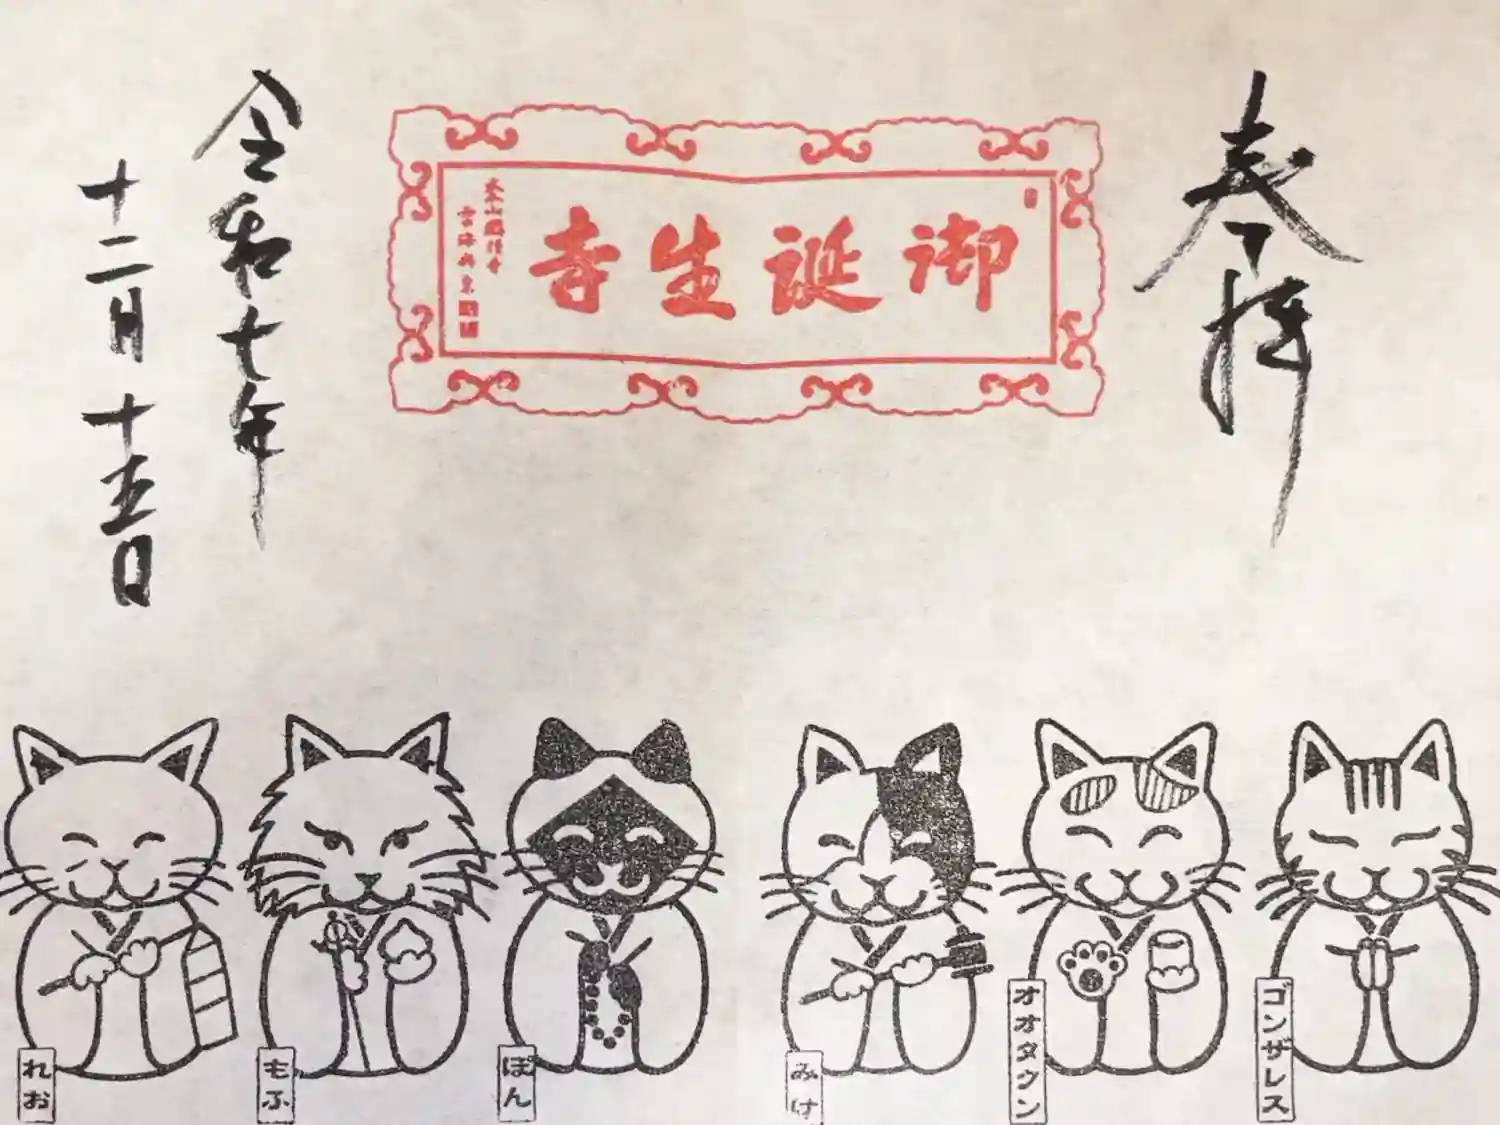 奉拝
御誕生寺
令和七年
十二月十五日
ゴンザレス
オオタウン
みけ
ぽん
もふ
れお